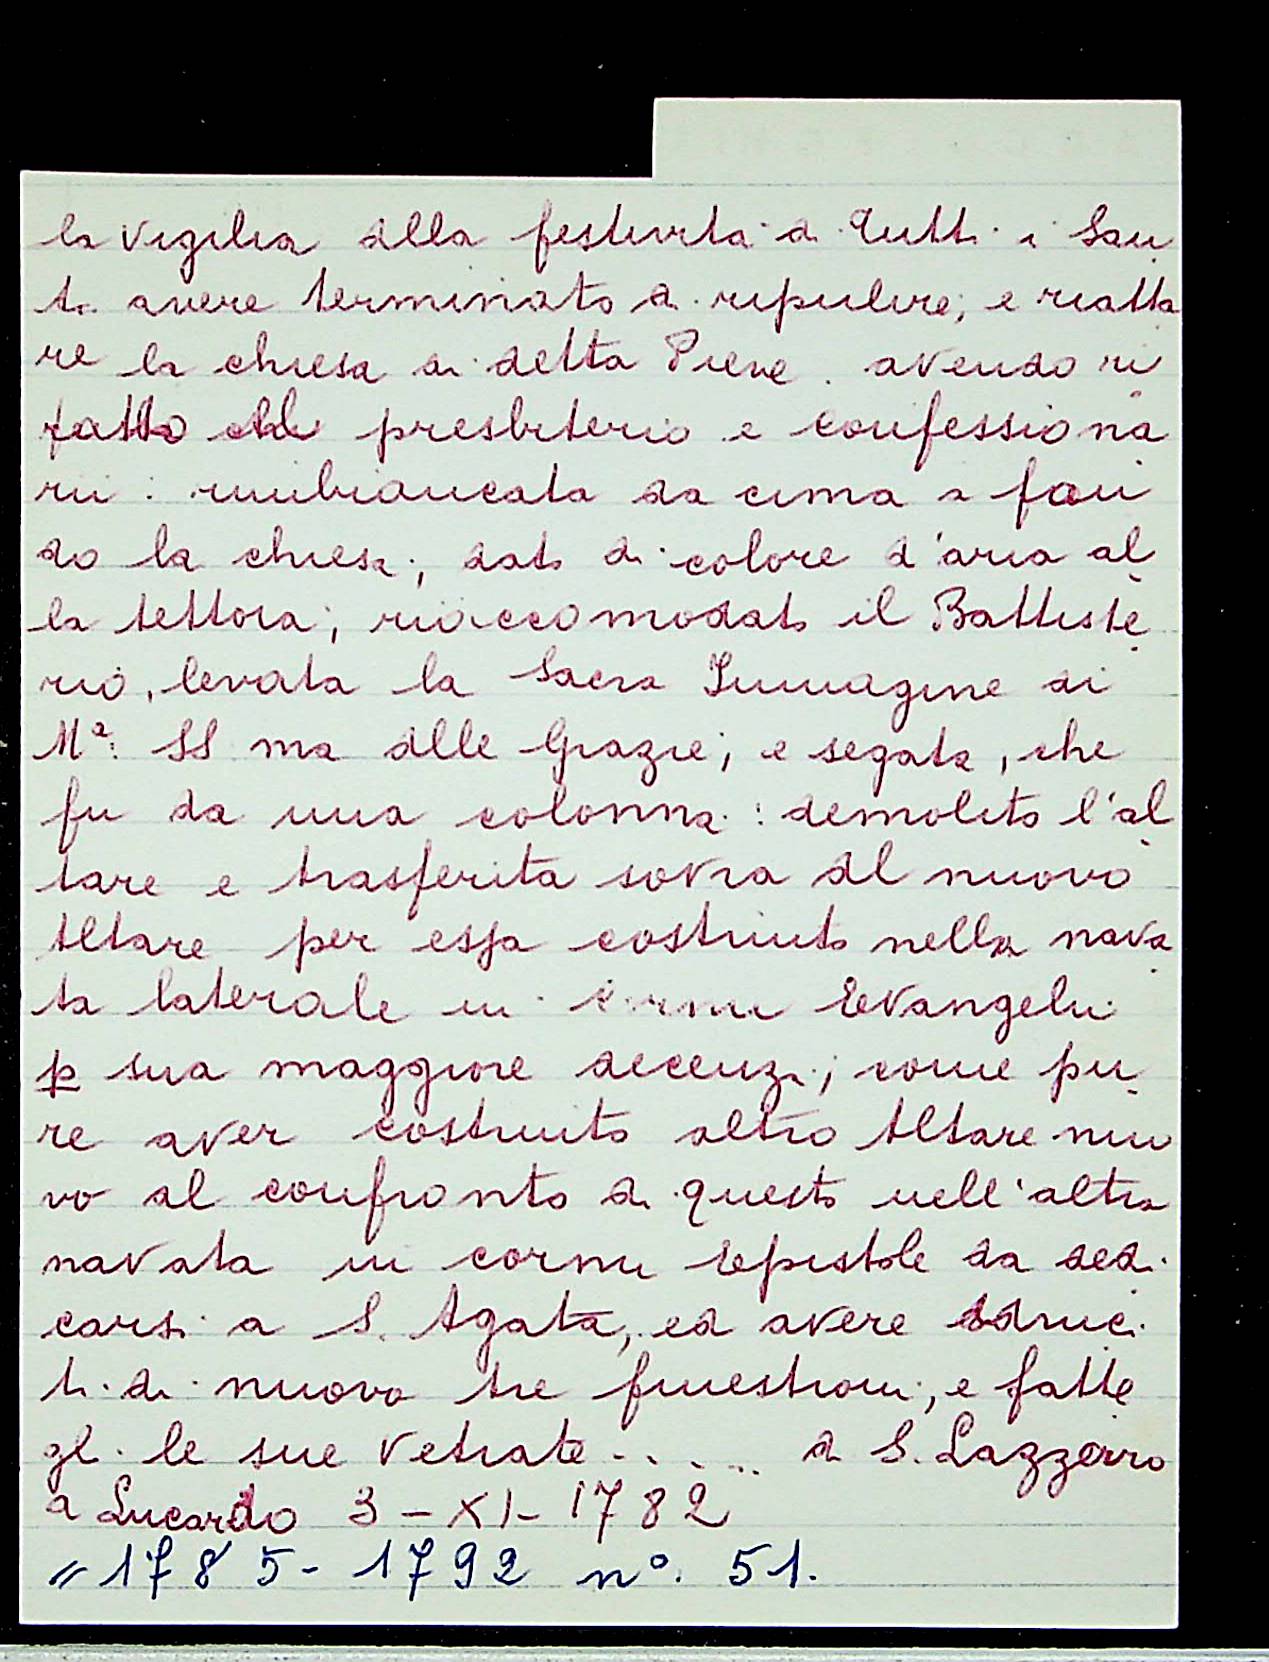 la vigilia della festività di Tutti i San
ti avere terminato di ripulire, e riatta
re la chiesa di detta Pieve. avendo ri
fatto il presbiterio e confessiona
rii: rimbiancata da cima a fon
do la chiesa; dato di colore d'aria al
la tettoia; riaccomodato il Battiste
rio, levata la Sacra Immagine di
Mª: SS ma delle Grazie; e segata, che
fu da una colonna: demolito l'al
tare e trasferita sovra del nuovo
Altare per essa costruito nella nava
ta laterale in cornu Evangelii
p sua maggiore decenza; come pu
re aver costruito altro Altare nuo
vo al confronto di questo nell'altra
navata in cornu Epistole da dedi
carsi a S. Agata, ed avere
ti di nuovo tre finestroni, e fatte
gli le sue vetrate ..... di S. Lazzerro
a Lucardo 3-XI-1782
" 1785-1792 n°. 51.